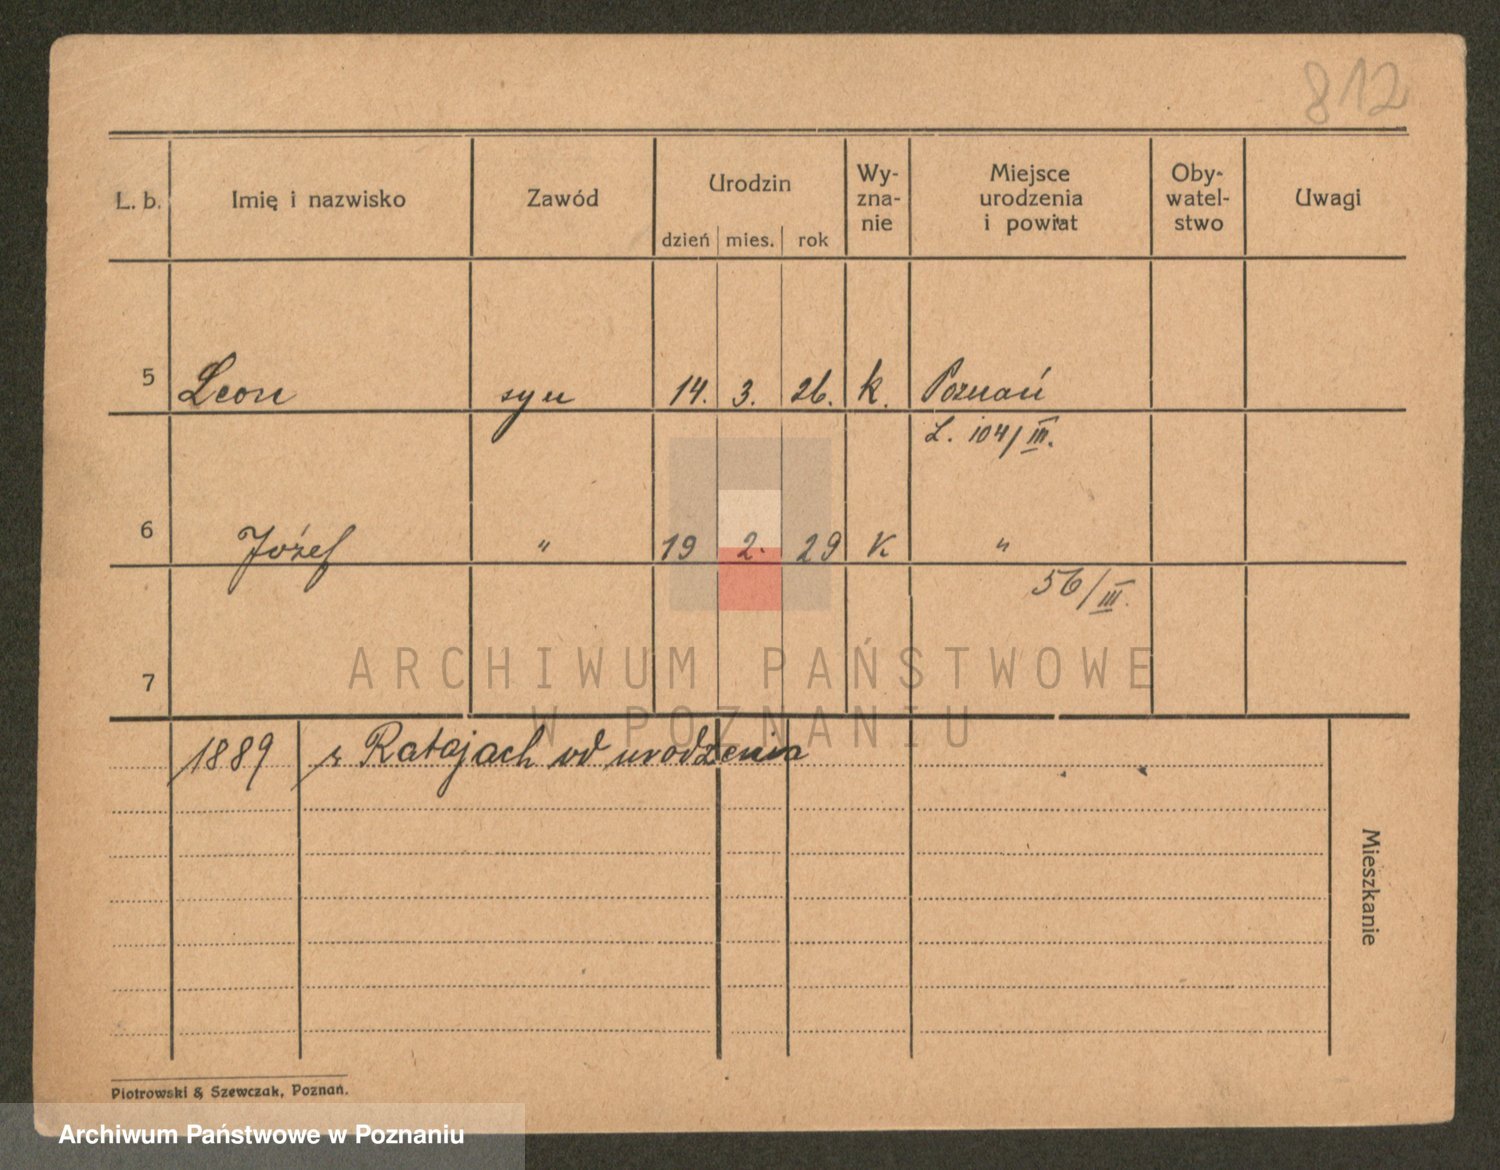 812
L. b. Imię i nazwisko Zawód Urodzin dzień mies. rok Wy-zna-nie Miejsce urodzenia i powiat Oby-watel-stwo Uwagi
5 Leon syn 14. 3. 26. k. Poznań
L. 104/III.
6 Józef " 19 2. 29 K "
56/III.
7
ARCHIWUM PAŃSTWOWE
W POZNANIU
1889 w Ratajach od urodzenia
Mieszkanie
Piotrowski & Szewczak, Poznań.
Archiwum Państwowe w Poznaniu